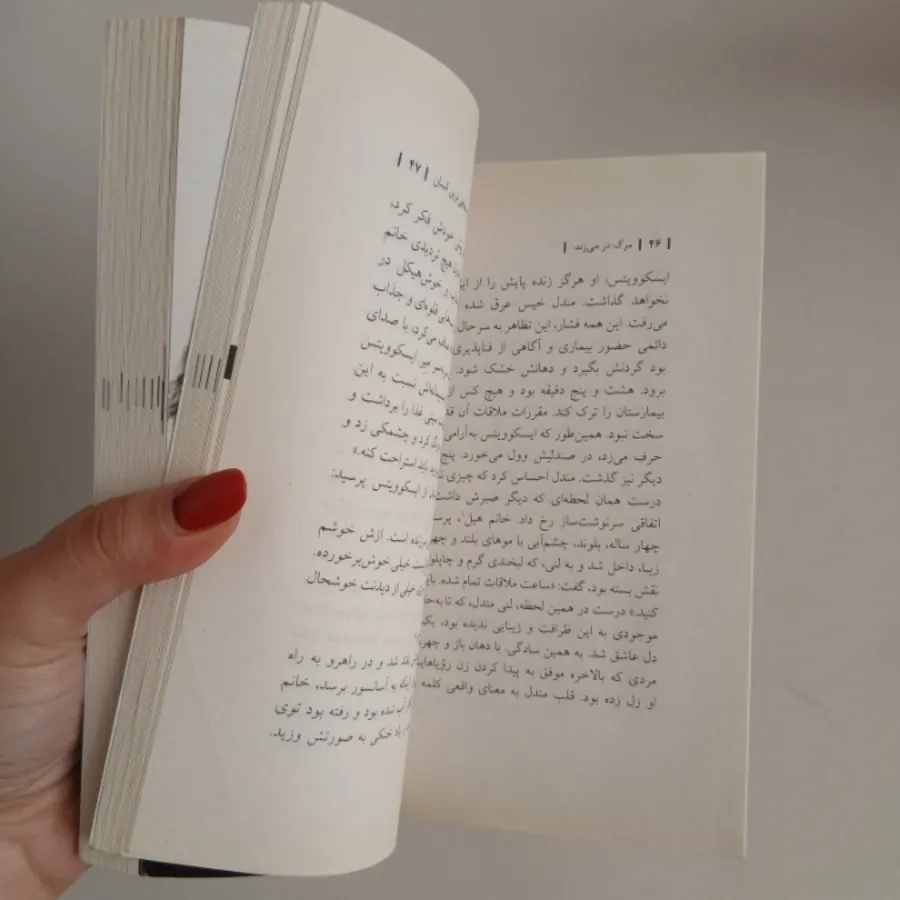 ۴۶ | مرگ در می‌زند
ایسکوویتس، او هرگز زنده پایش را از این
نخواهد گذاشت. مندل خیس عرق شده
می‌رفت. این همه فشار، این تظاهر به سرحال
دائمی حضور بیماری و آگاهی از فناپذیری
بود گردنش بگیرد و دهانش خشک شود.
برود. هشت و پنج دقیقه بود و هیچ کس از
بیمارستان را ترک کند. مقررات ملاقات آن قد
سخت نبود. همین‌طور که ایسکوویتس به‌آرامی
حرف می‌زد، در صندلیش وول می‌خورد. پنج
دیگر نیز گذشت. مندل احساس کرد که چیزی
درست همان لحظه‌ای که دیگر صبرش داشت
اتفاقی سرنوشت‌ساز رخ داد. خانم هیل۱، پرس
چهار ساله، بلوند، چشم‌آبی با موهای بلند و چهر
زیبا، داخل شد و به لنی، که لبخندی گرم و چاپلو
نقش بسته بود، گفت: «ساعت ملاقات تمام شده. بای
کنید.» درست در همین لحظه، لنی مندل، که تا به‌حا
موجودی به این ظرافت و زیبایی ندیده بود، یک
دل عاشق شد. به همین سادگی. با دهان باز و چهر
مردی که بالاخره موفق به پیدا کردن زن رؤیاها
او زل زده بود. قلب مندل به معنای واقعی کلمه
| ۴۷ |
خودش فکر کرد،
هیچ تردیدی خانم
و خوش‌هیکل در
قلوه‌ای و جذاب
می‌کرد، با صدای
سر میز ایسکوویتس
نسبت به این
سینی غذا را برداشت و
کرد و چشمکی زد و
باید استراحت کنه.»
از ایسکوویتس پرسید:
است. ازش خوشم
خیلی خوش‌برخورده.
خیلی از دیدنت خوشحال
بلند شد و در راهرو به راه
اینکه به آسانسور برسد، خانم
شده بود و رفته بود توی
باد خنکی به صورتش وزید.